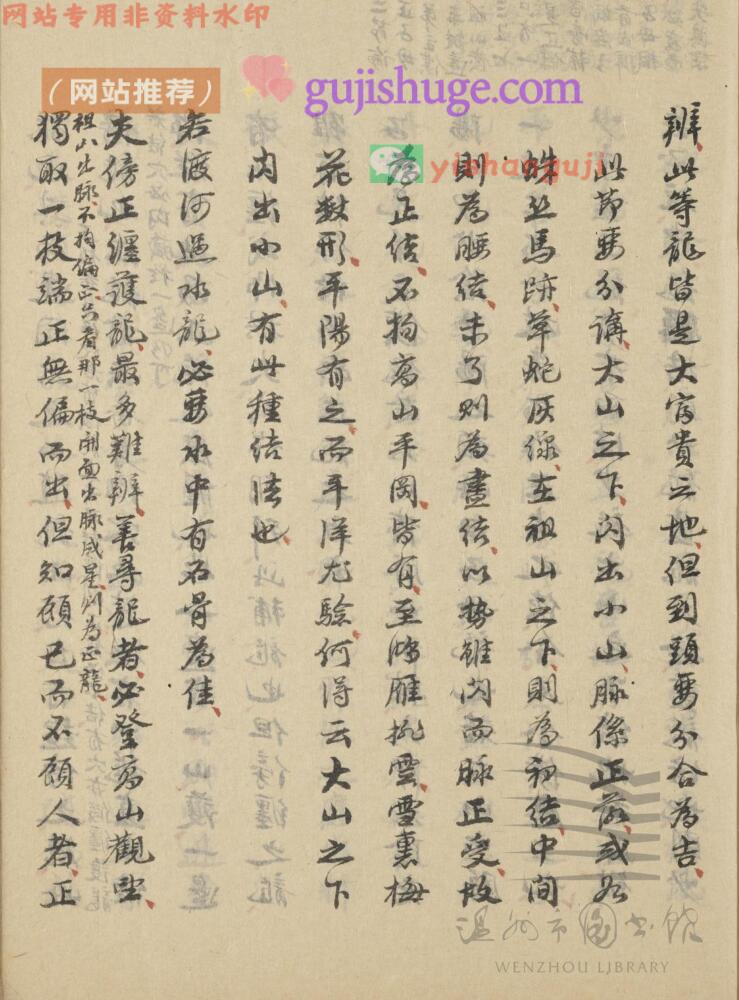 网站专用非资料水印
(网站推荐)
gujishuge.com
yishanguji
辨此等龍皆是大富貴之地但到頭要分合為吉
此節要分講大山之下閃出小山脈係正落或如
蛛絲馬跡草蛇灰線在祖山之下則為初結中間
則為腰結未了則為盡結以势雖閃而脈正受故
為正結不拘高山平岡皆有至鴻雁挑雲雪裏梅
花數形平陽有之而平洋尤驗何得云大山之下
內出小山有此種結法也
若渡河過水龍必要水中有石骨為佳
夫傍正纏護龍最多難辨善尋龍者必登高山觀望
祖山出脈不拘偏正只看那一枝開面出脈成星則為正龍
獨取一枝端正無偏而出但知顧己而不顧人者正
温州市图书馆
WENZHOU LIBRARY